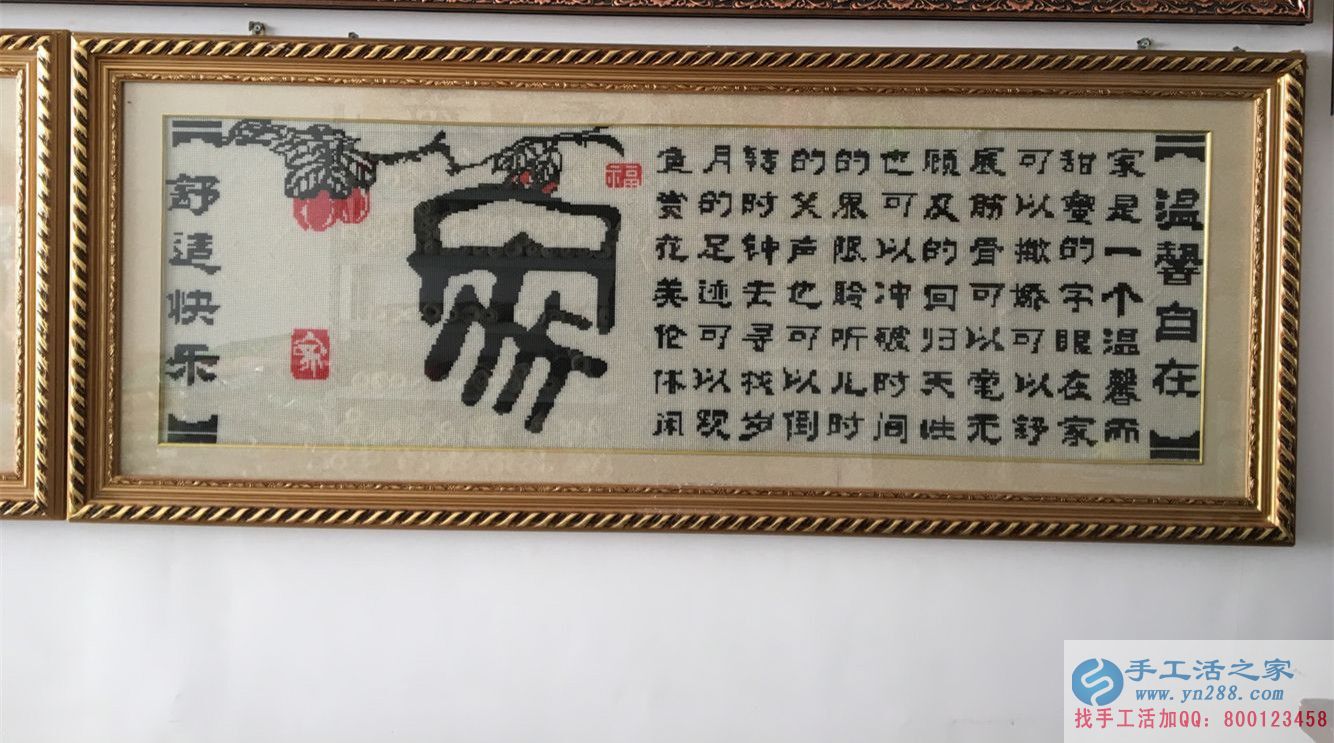 温馨自在
家是一个温馨而
甜蜜的字眼在家
可以撒娇可以舒
展筋骨可以毫无
顾及的回归天性
也可以冲破时间
的界限聆听儿时
的笑声也可以倒
转时钟去寻找岁
月的足迹可以观
鱼赏花美伦休闲
福
家
家
舒适快乐
手工活之家
www.yn288.com
找手工活加QQ：800123458